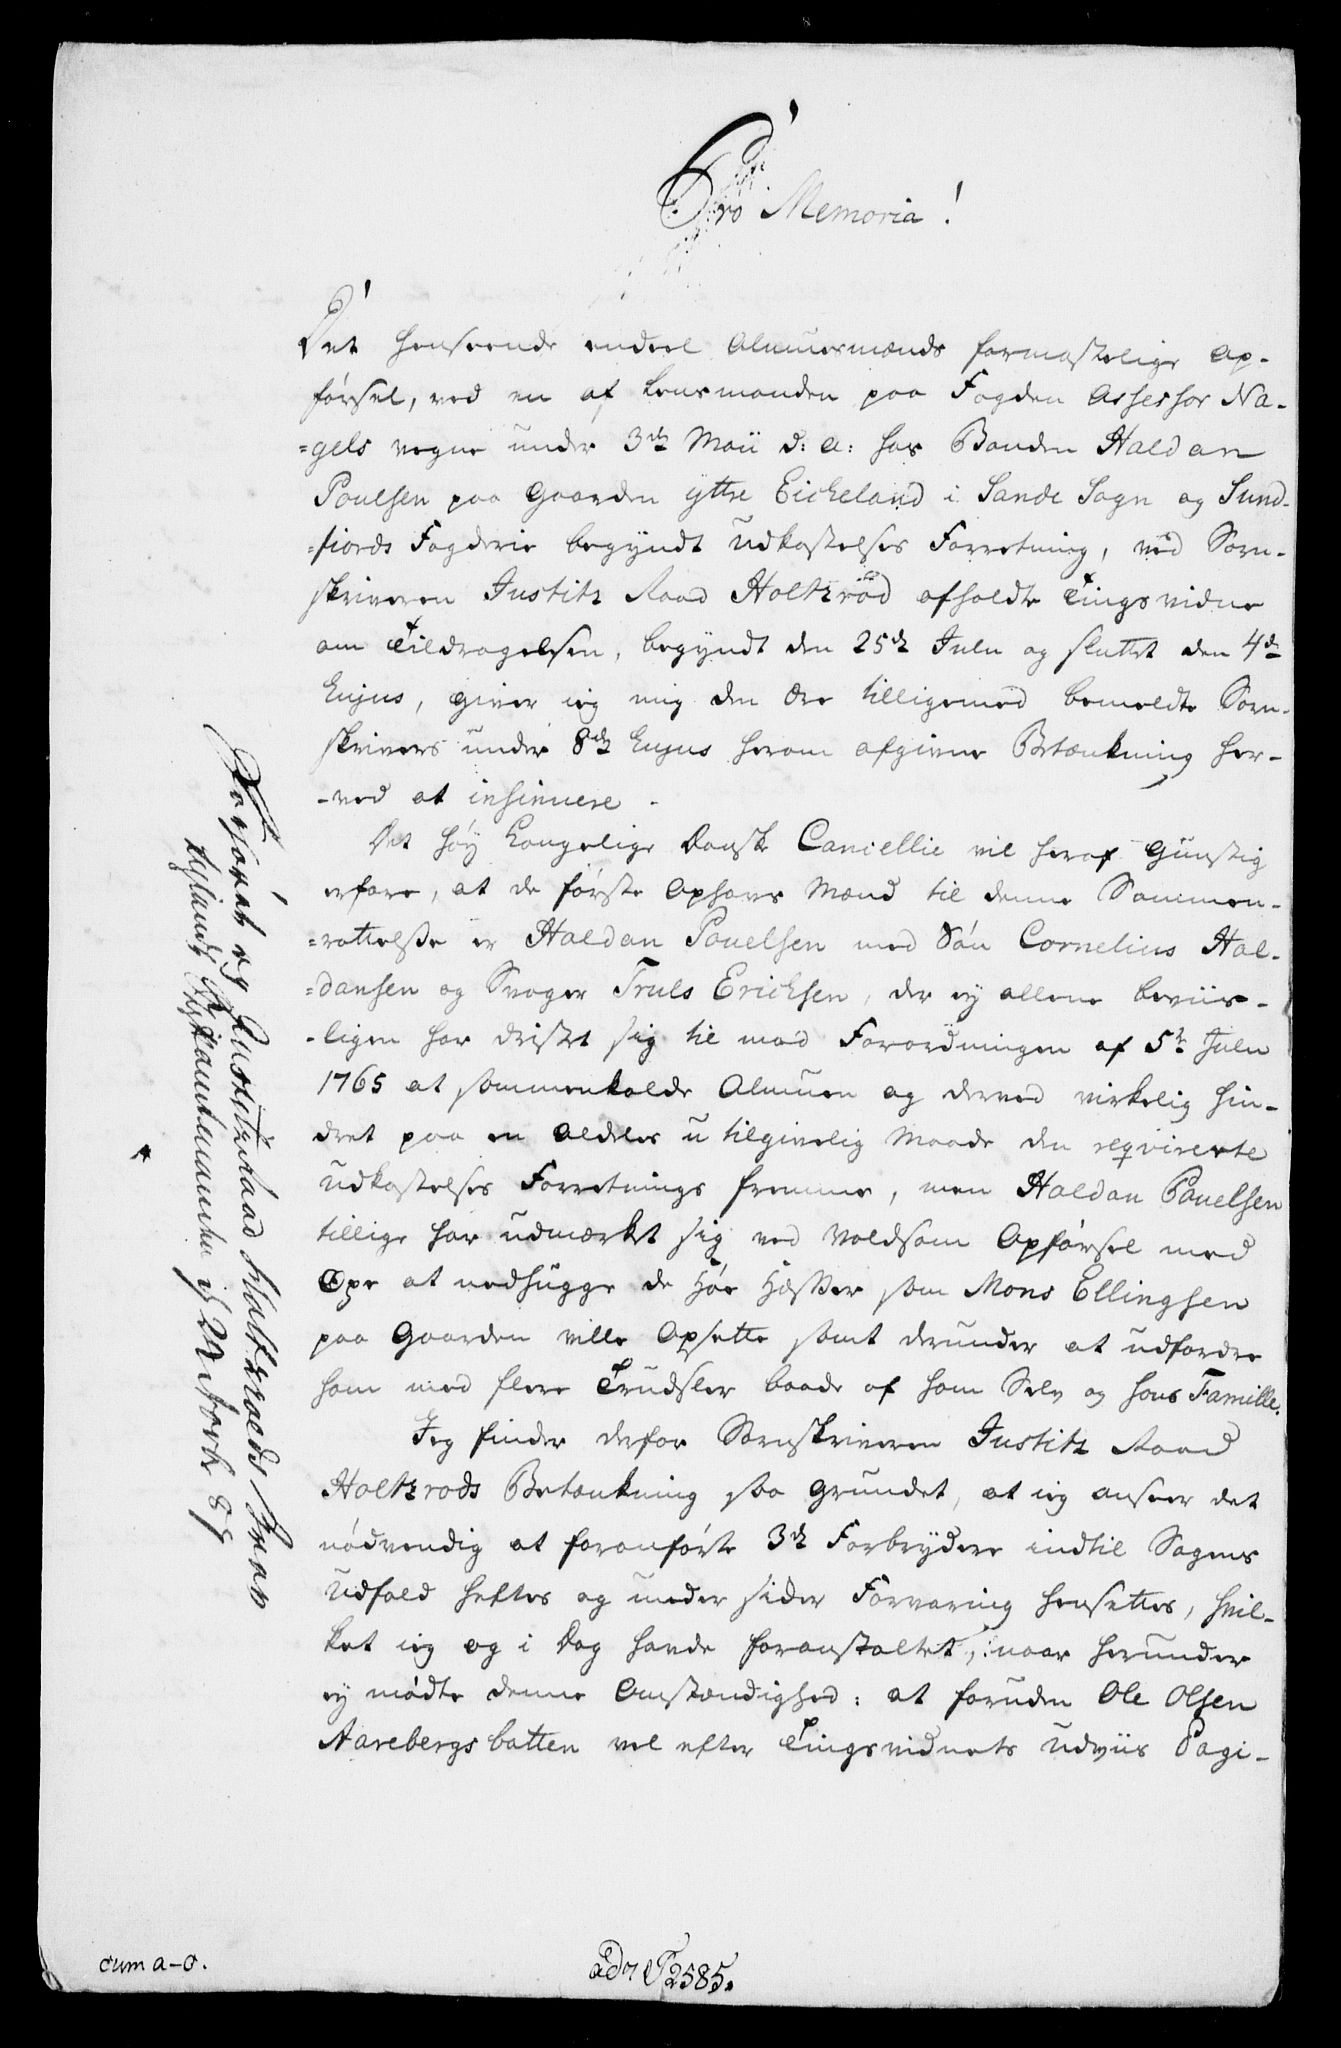 Pro Memoria!
Det henseende endeel Almuesmænds formastelige Op-
førsel, ved en af Lensmanden paa Fogden Assessor Na-
=gels vegne under 3de Maii d: a: hos Bonden Haldan
Poulsen paa Gaarden yttre Eickeland i Sande Sogn og Sund-
=fiords Fogderie begyndt Udkastelses Forretning, ved Sorn-
skriveren Justitz Raad Holtzrød afholdte Tingsvidne
om Tildragelsen, begyndt den 25de Julii og sluttet den 4de
hujus, giver ieg mig den Ære tilligemed bemeldte Sorn-
skrivers under 8de hujus herom afgivne Betænkning her-
-ved at insinuere.
Det høy Kongelige Danske Cancellie vil heraf gunstig
erfare, at de første Ophavs Mænd til denne Sammen-
=rottelse er Haldan Pouelsen med Søn Cornelius Hal-
=dansen og Svoger Truls Erichsen, der ey allene beviis-
-ligen har dristet sig til mod Forordningen af 5te Julii
1765 at sammenkalde Almuen og derved virkelig hin-
dret paa en aldeles utilgivelig Maade den reqvirerte
Udkastelses Forretnings fremme, men Haldan Pouelsen
tillige har udmærket sig ved voldsom Opførsel med
Øxe at nedhugge de Høe Hæsser som Mons Ellingsen
paa Gaarden ville Opsette samt derunder at udfordre
ham med flere Trudsler baade af ham Selv og hans Famille.
Jeg finder derfor Sornskriveren Justitz Raad
Holtzrøds Betænkning saa grundet, at ieg anseer det
nødvendig at foranførte 3de Forbrydere indtil Sagens
Udfald heftes og under sikker Forvaring hensettes, hvil-
ket ieg og i Dag havde foranstaltet, naar herunder
ey mødte denne Omstændighed: at foruden Ole Olsen
Aarebergsbotten vel efter Tingsvidnets Udviis Pagi-
Justitzraad Holtzroeds
og Stiftamtmanden
cum a-o.
ad No P2585.